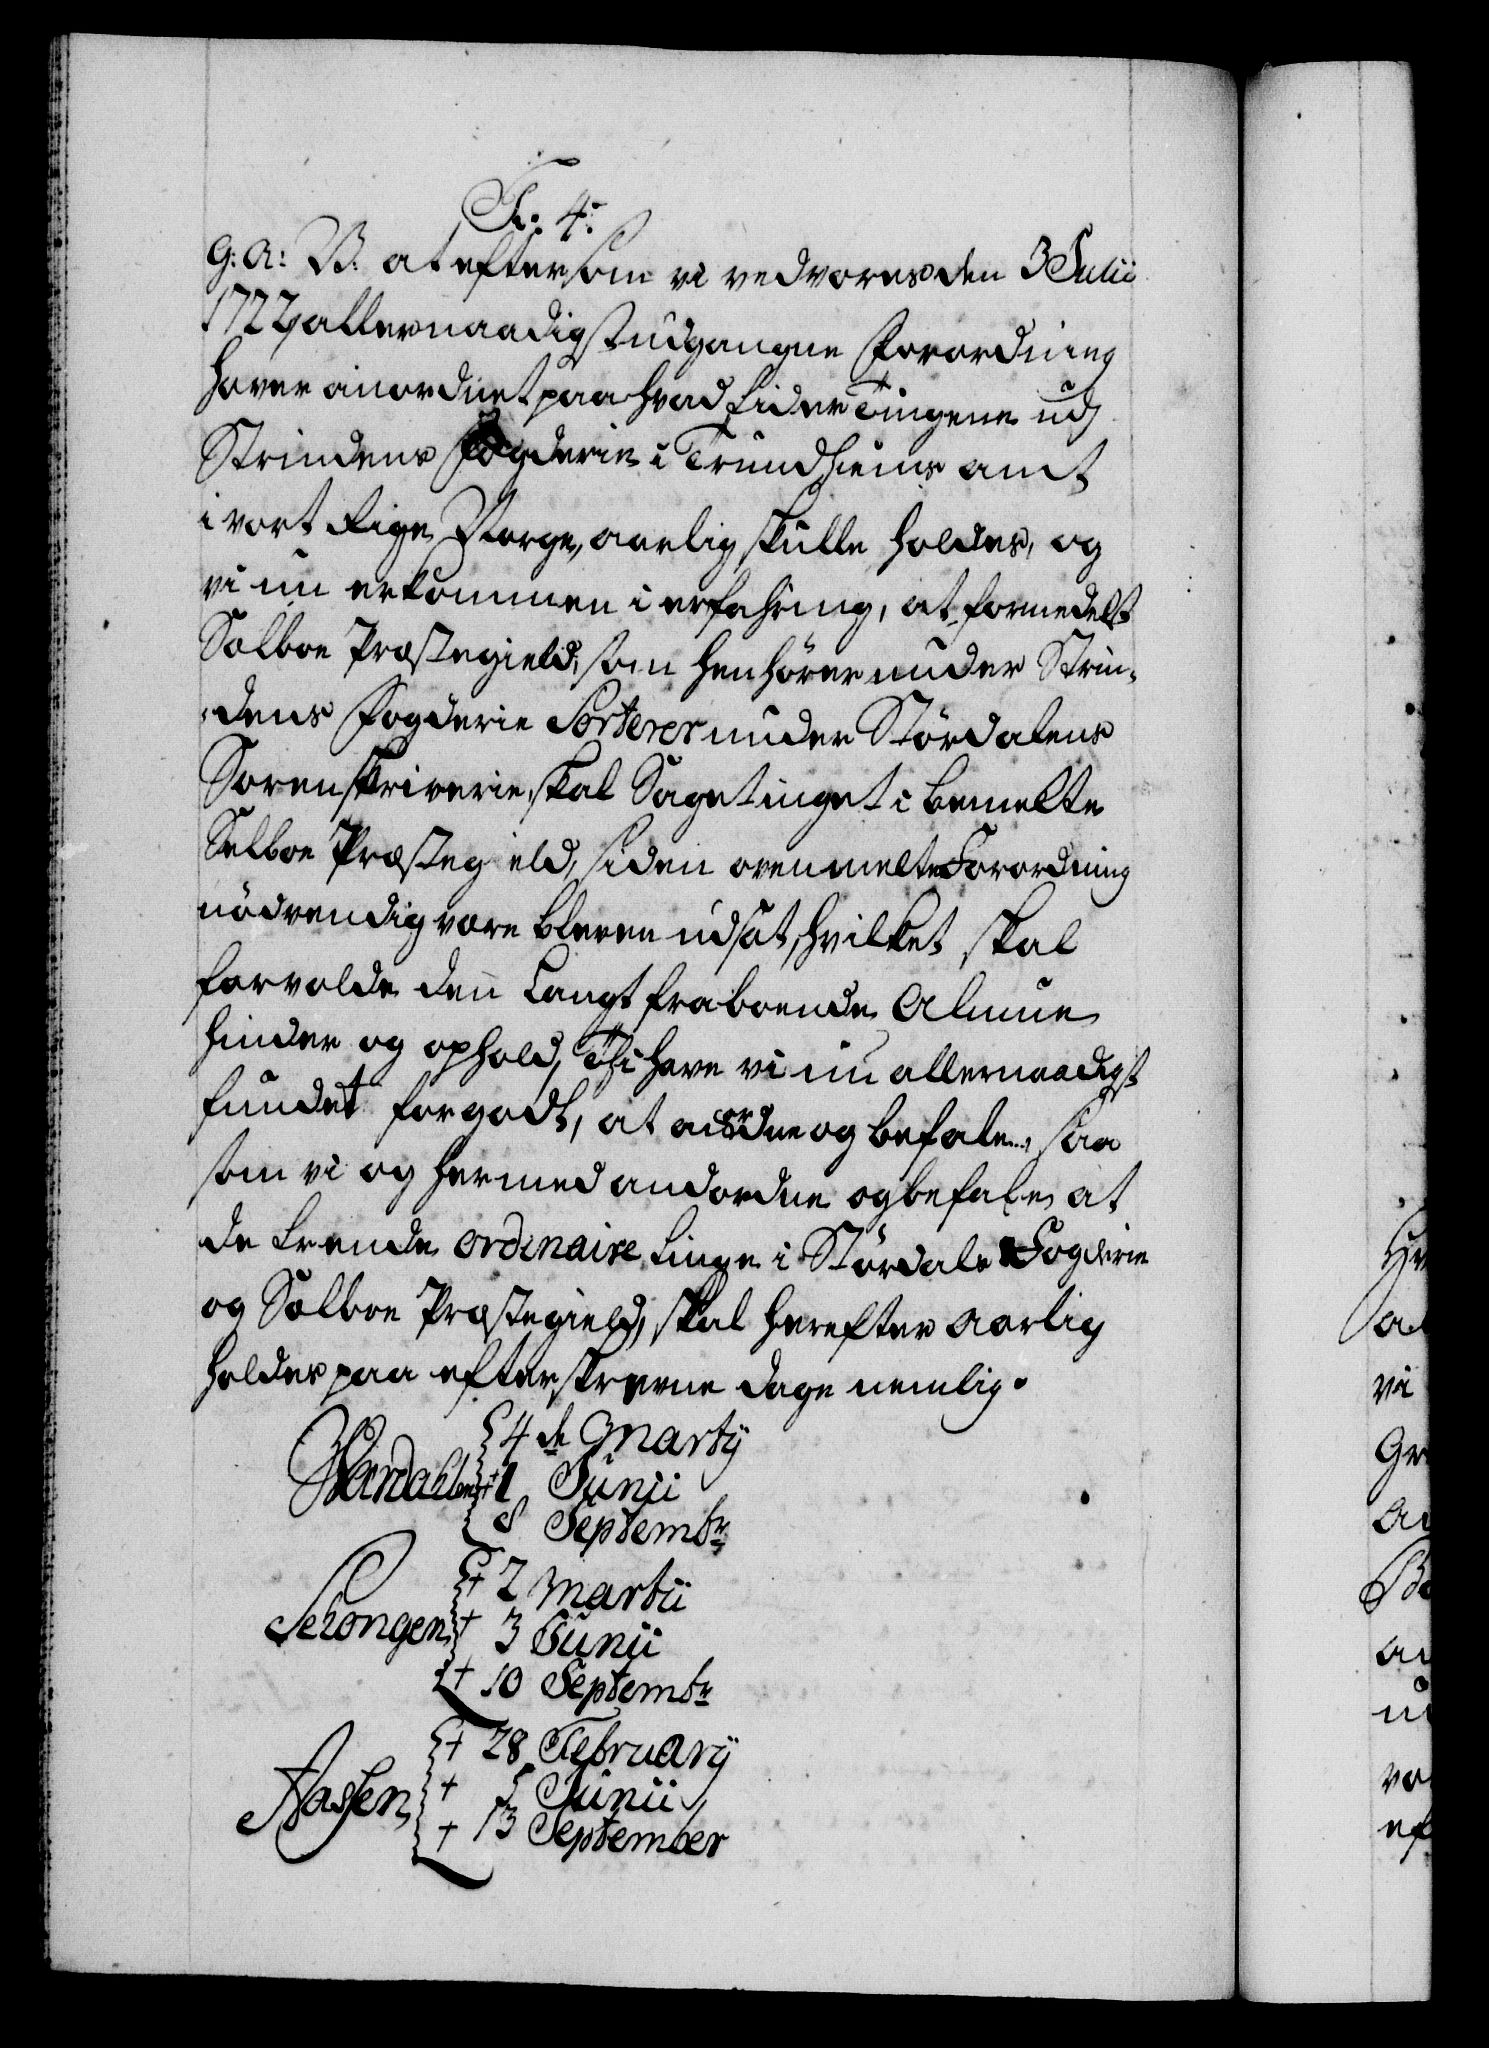 F. 4.
G: A: V: at eftersom vi ved vores den 3 Julii
1727 allernaadigst udgangne Forordning
haver anordnet paa hvad tider Tingene udj
Strindens Fogderie i Trundhiems amt
i vort Rige Norge, aarlig skulle holdes, og
vi nu er kommen i erfahring, at formedelst
Sælboe Præstegield, som henhörer under Strin-
dens Fogderie Sorterer under Stördalens
Sorenskriverie, skal Sagetinget i bemelte
Selboe Præstegield, siden ovenmelte Forordning
nödvendig være bleven udsat, hvilket skal
forvolde den Langt fraboende Almue
hinder og ophold, Thi have vi nu allernaadigst
fundet for godt, at anordne og befale, saa
som vi og hermed andordne og befale, at
de trende ordinaire tinge i Stördals Fogderie
og Sælboe Præstegield, skal herefter aarlig
holdes paa efterskrevne dage nemlig.
4 de Martij
Værdahlen + 1 Junii
8 Septembr
+ 2 Martii
Schongen + 3 Junii
+ 10 Septembr
+ 28 February
Aasen + 5 Junii
+ 13 September